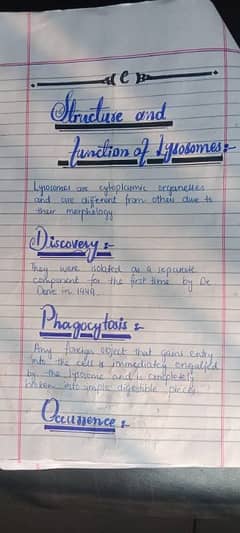 Structure and
function of Lysosomes:-
Lysosomes are cytoplasmic organelles
and are different from other due to
their morphology
Discovery:-
They were isolated as a separate
component for the first time by De
Duve in 1949.
Phagocytosis:-
Any foreign object that gains entry
into the cell is immediately engulfed
by the lysosome and is completely
broken into simple digestible pieces.
Occurrence:-